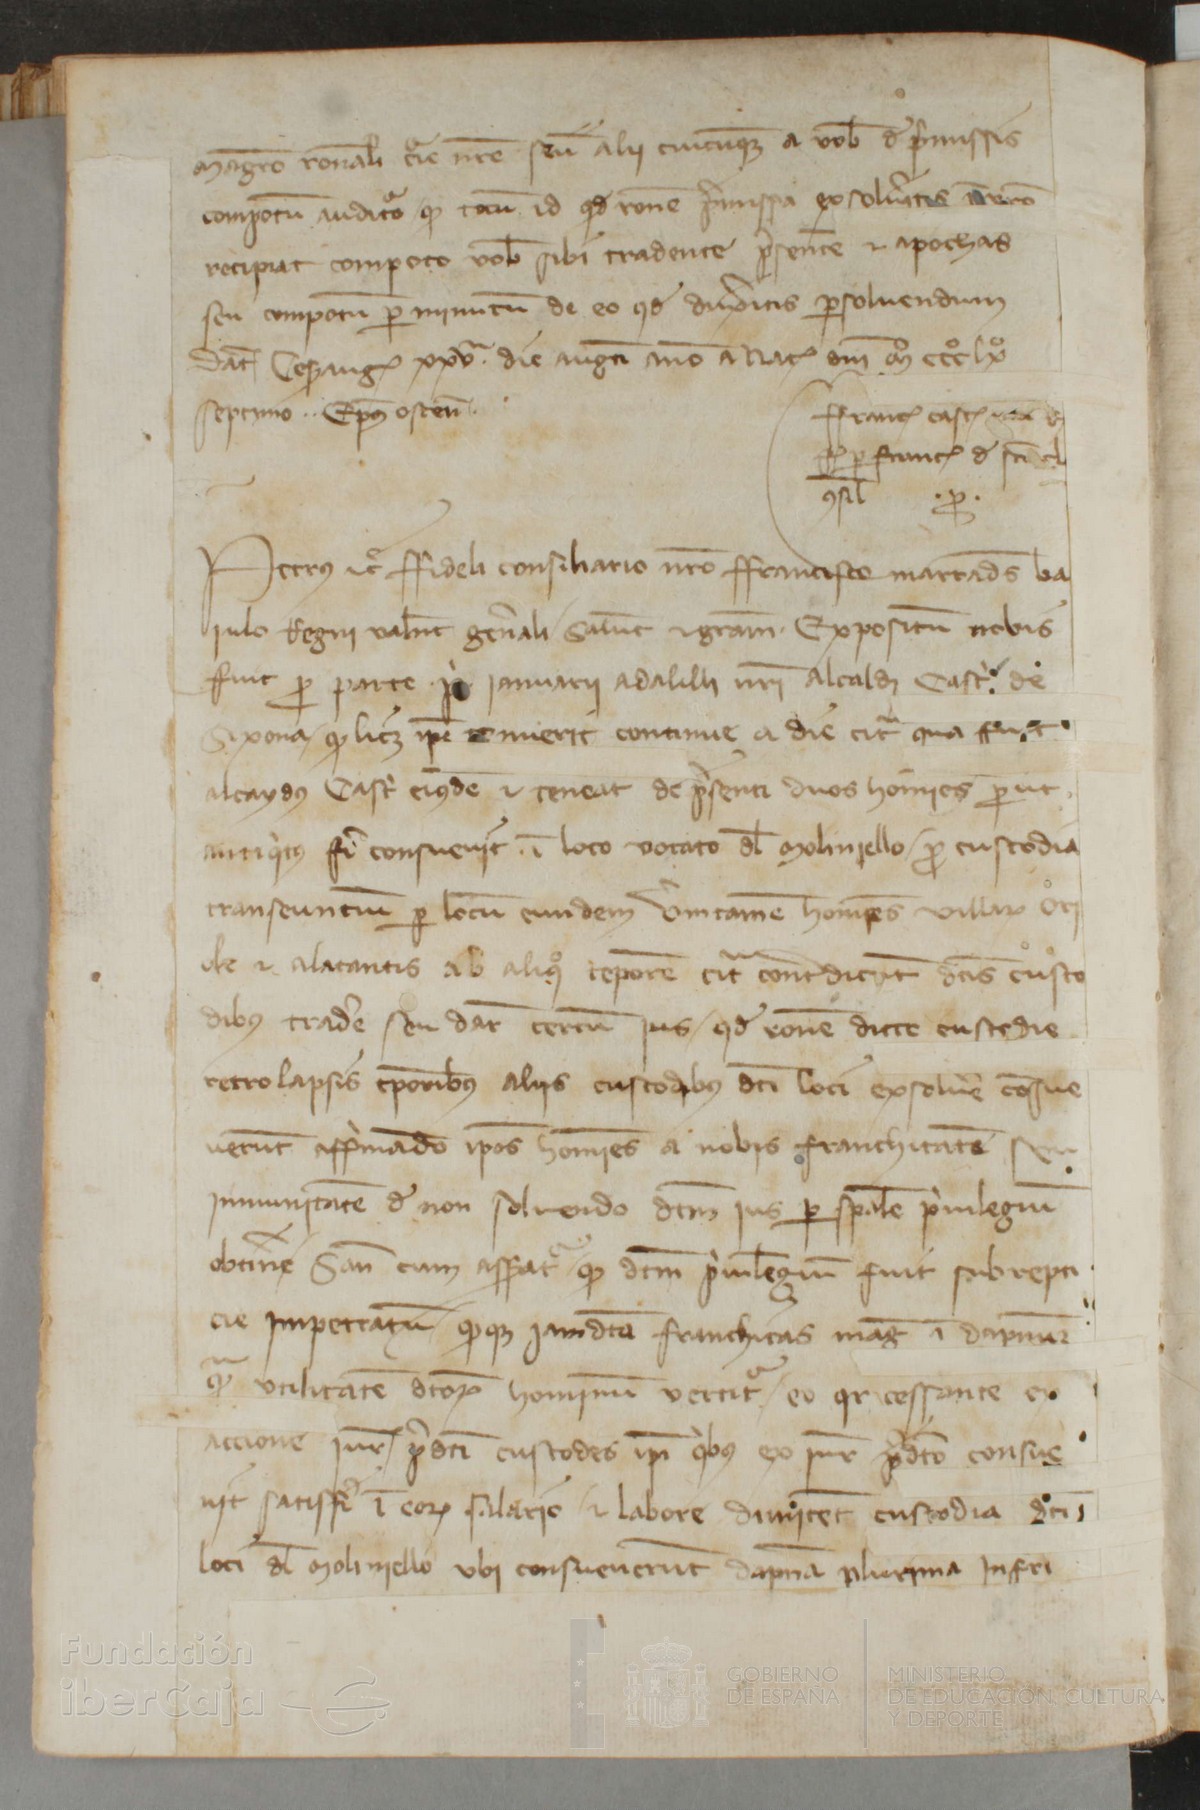 magro ronali Curie nre seu alii cuicumque a vob de premissis
compotum audituro quod totum id quod rone premissa exsolveritis
recipiat compoto vob sibi tradente presentem et apochas
seu compotum per minutum de eo quod duxeritis persolvendum
Dat Cesarauguste xxv die augusti anno a Nat dni Mº CCCº lxº
septimo Epus oscen
Francs Casts
per Francs de
consil p
Petrus etc Fideli consiliario nro Francisco Marrades ba
iulo Regni Valent generali Salut et gram Expositum nobis
fuit per parte P Januarii adalilli nri Alcaldi Castri de
Sixona quod licet ipse tenuerit continue a die citra qua fuit
alcaydus Castri eiusdem et teneat de presenti duos homines prout
antiquitus fieri consuevit in loco vocato del Moliniello pro custodia
transeuntium per locum eundem Veruntamen homines villarum Ori
ole et Alacantis ab aliquo tempore citra contradicunt dictis custo
dibus tradere seu dare certum ius quod rone dicte custodie
retrolapsis temporibus aliis custodibus dicti loci exsolvere consue
verunt affirmando ipsos homines a nobis franchitatem seu
inmunitatem de non solvendo dictum ius per speciale privilegium
obtinere Sane cum asseratur quod dictum privilegium fuit subrepti
cie impetratum quodque iamdicta franchitas magis in dapnum
quam utilitatem dictorum hominum vertitur eo quia cessante ex
accione iuris predicti custodes ipsi quibus ex iure predicto consue
vit satisfieri in eorum salario et labore dimitent custodia dicti
loci del Moliniello ubi consueverunt dapna plurima inferri
Fundación
iberCaja
GOBIERNO
DE ESPAÑA
MINISTERIO
DE EDUCACIÓN, CULTURA
Y DEPORTE